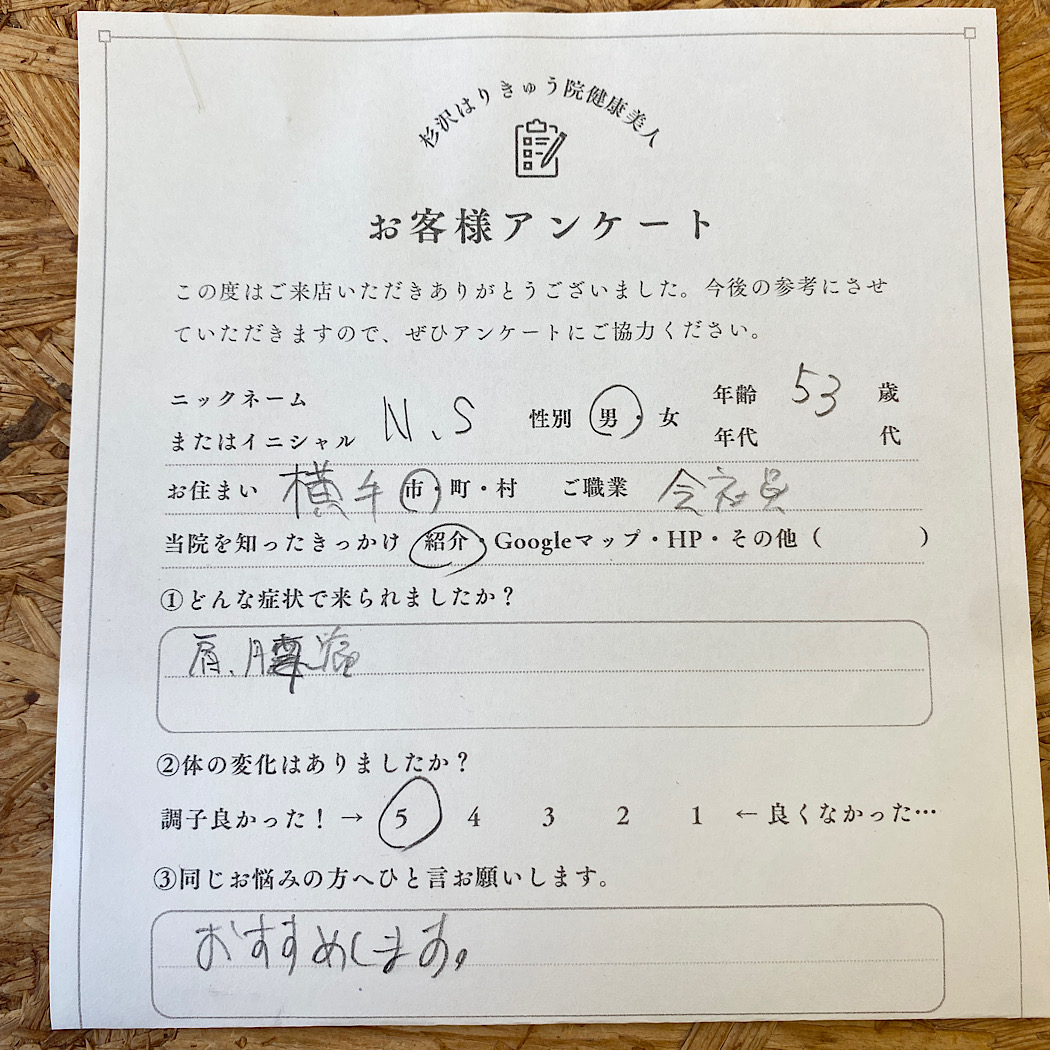 杉沢はりきゅう院健康美人
お客様アンケート
この度はご来店いただきありがとうございました。今後の参考にさせ
ていただきますので、ぜひアンケートにご協力ください。
ニックネーム
またはイニシャル N.S 性別 男・女 年齢 53 歳
年代 代
お住まい 横手 市・町・村 ご職業 会社員
当院を知ったきっかけ 紹介・Googleマップ・HP・その他（ ）
①どんな症状で来られましたか？
肩、腰痛
②体の変化はありましたか？
調子良かった！→ 5 4 3 2 1 ←良くなかった…
③同じお悩みの方へひと言お願いします。
おすすめします。